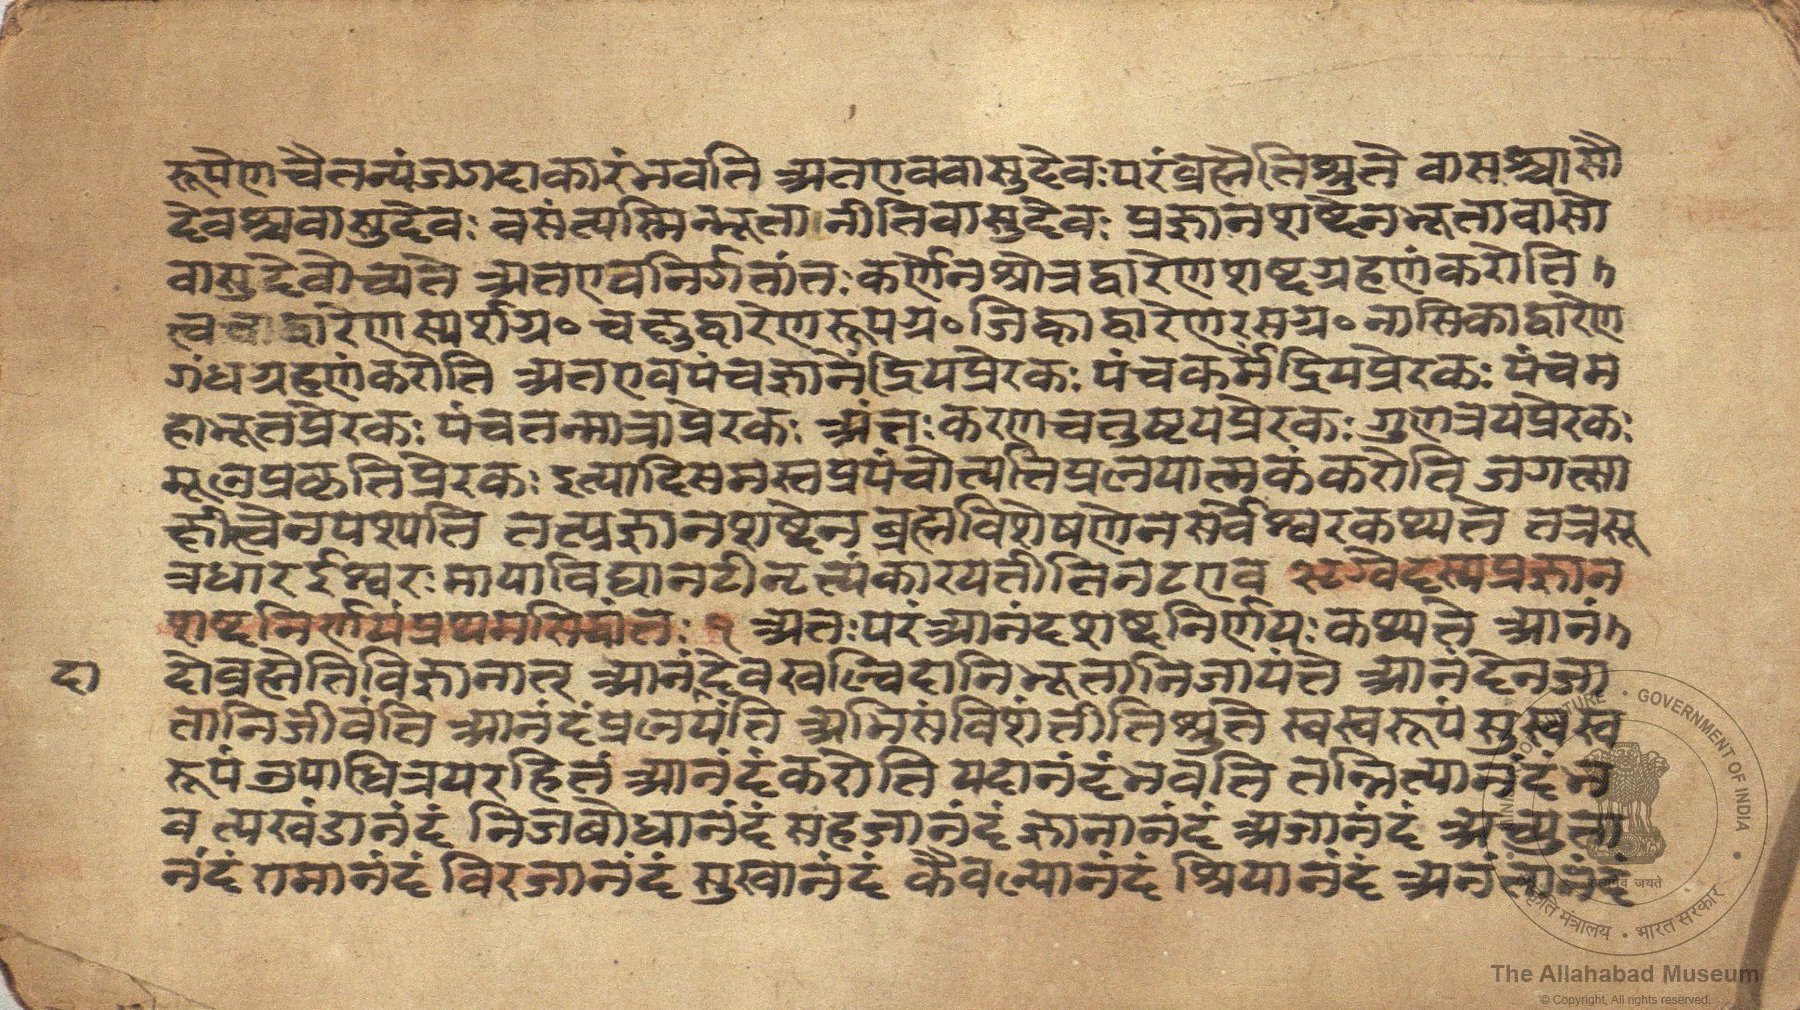 रूपेण चैतन्यं जगदाकारं भवति अत एव वासुदेवः परं ब्रह्मेति श्रुते वासश्चासौ
देवश्चवासुदेवः वसंत्यस्मिन्भूतानीति वासुदेवः प्रज्ञानशब्देन भूतावासो
वासुदेवोच्यते अत एव निर्गतांतः कर्णेन श्रोत्रद्वारेण शब्दग्रहणं करोति
त्वचाद्वारेण स्पर्शग्र॰ चक्षुद्वारेण रूपग्र॰ जिह्वाद्वारेण रसग्र॰ नासिकाद्वारेण
गंधग्रहणं करोति अत एव पंचज्ञानेंद्रियप्रेरकः पंचकर्मेंद्रियप्रेरकः पंचम
हाभूतप्रेरकः पंचतन्मात्राप्रेरकः अंतःकरणचतुष्टयप्रेरकः गुणत्रयप्रेरकः
मूलप्रकृतिप्रेरकः इत्यादिसमस्तप्रपंचोत्पत्तिप्रलयात्मकं करोति जगत्सा
क्षीत्वेन पश्यति तत्प्रज्ञानशब्देन ब्रह्मविशेषणेन सर्वेश्वर कथ्यते तत्र सू
त्रधार ईश्वरः मायाविद्यानटी नृत्यं कारयतीति नट एव ऋग्वेदस्य प्रज्ञान
शब्दनिर्णयं प्रथमसिद्धांतः १ अतःपरं आनंदशब्दनिर्णयः कथ्यते आनं
दो ब्रह्मेति विज्ञानात् आनंदेव खल्विदानि भूतानि जायंते आनंदेन जा
दा
तानि जीवंति आनंदं प्रलेयंति अभिसंविशंतीति श्रुते स्वस्वरूपं सुखस्व
रूपं उपाधित्रयरहितं आनंदं करोति यदानंदं भवति तन्नित्यानंदं भ
व त्यखंडानंदं निजबोधानंदं सहजानंदं ज्ञानानंदं अजानंदं अच्युता
नंदं रामानंदं विरजानंदं सुखानंदं कैवल्यानंदं श्रियानंदं अनंतानंदं
MINISTRY OF CULTURE • GOVERNMENT OF INDIA
सत्यमेव जयते
संस्कृति मंत्रालय • भारत सरकार
The Allahabad Museum
© Copyright, All rights reserved.